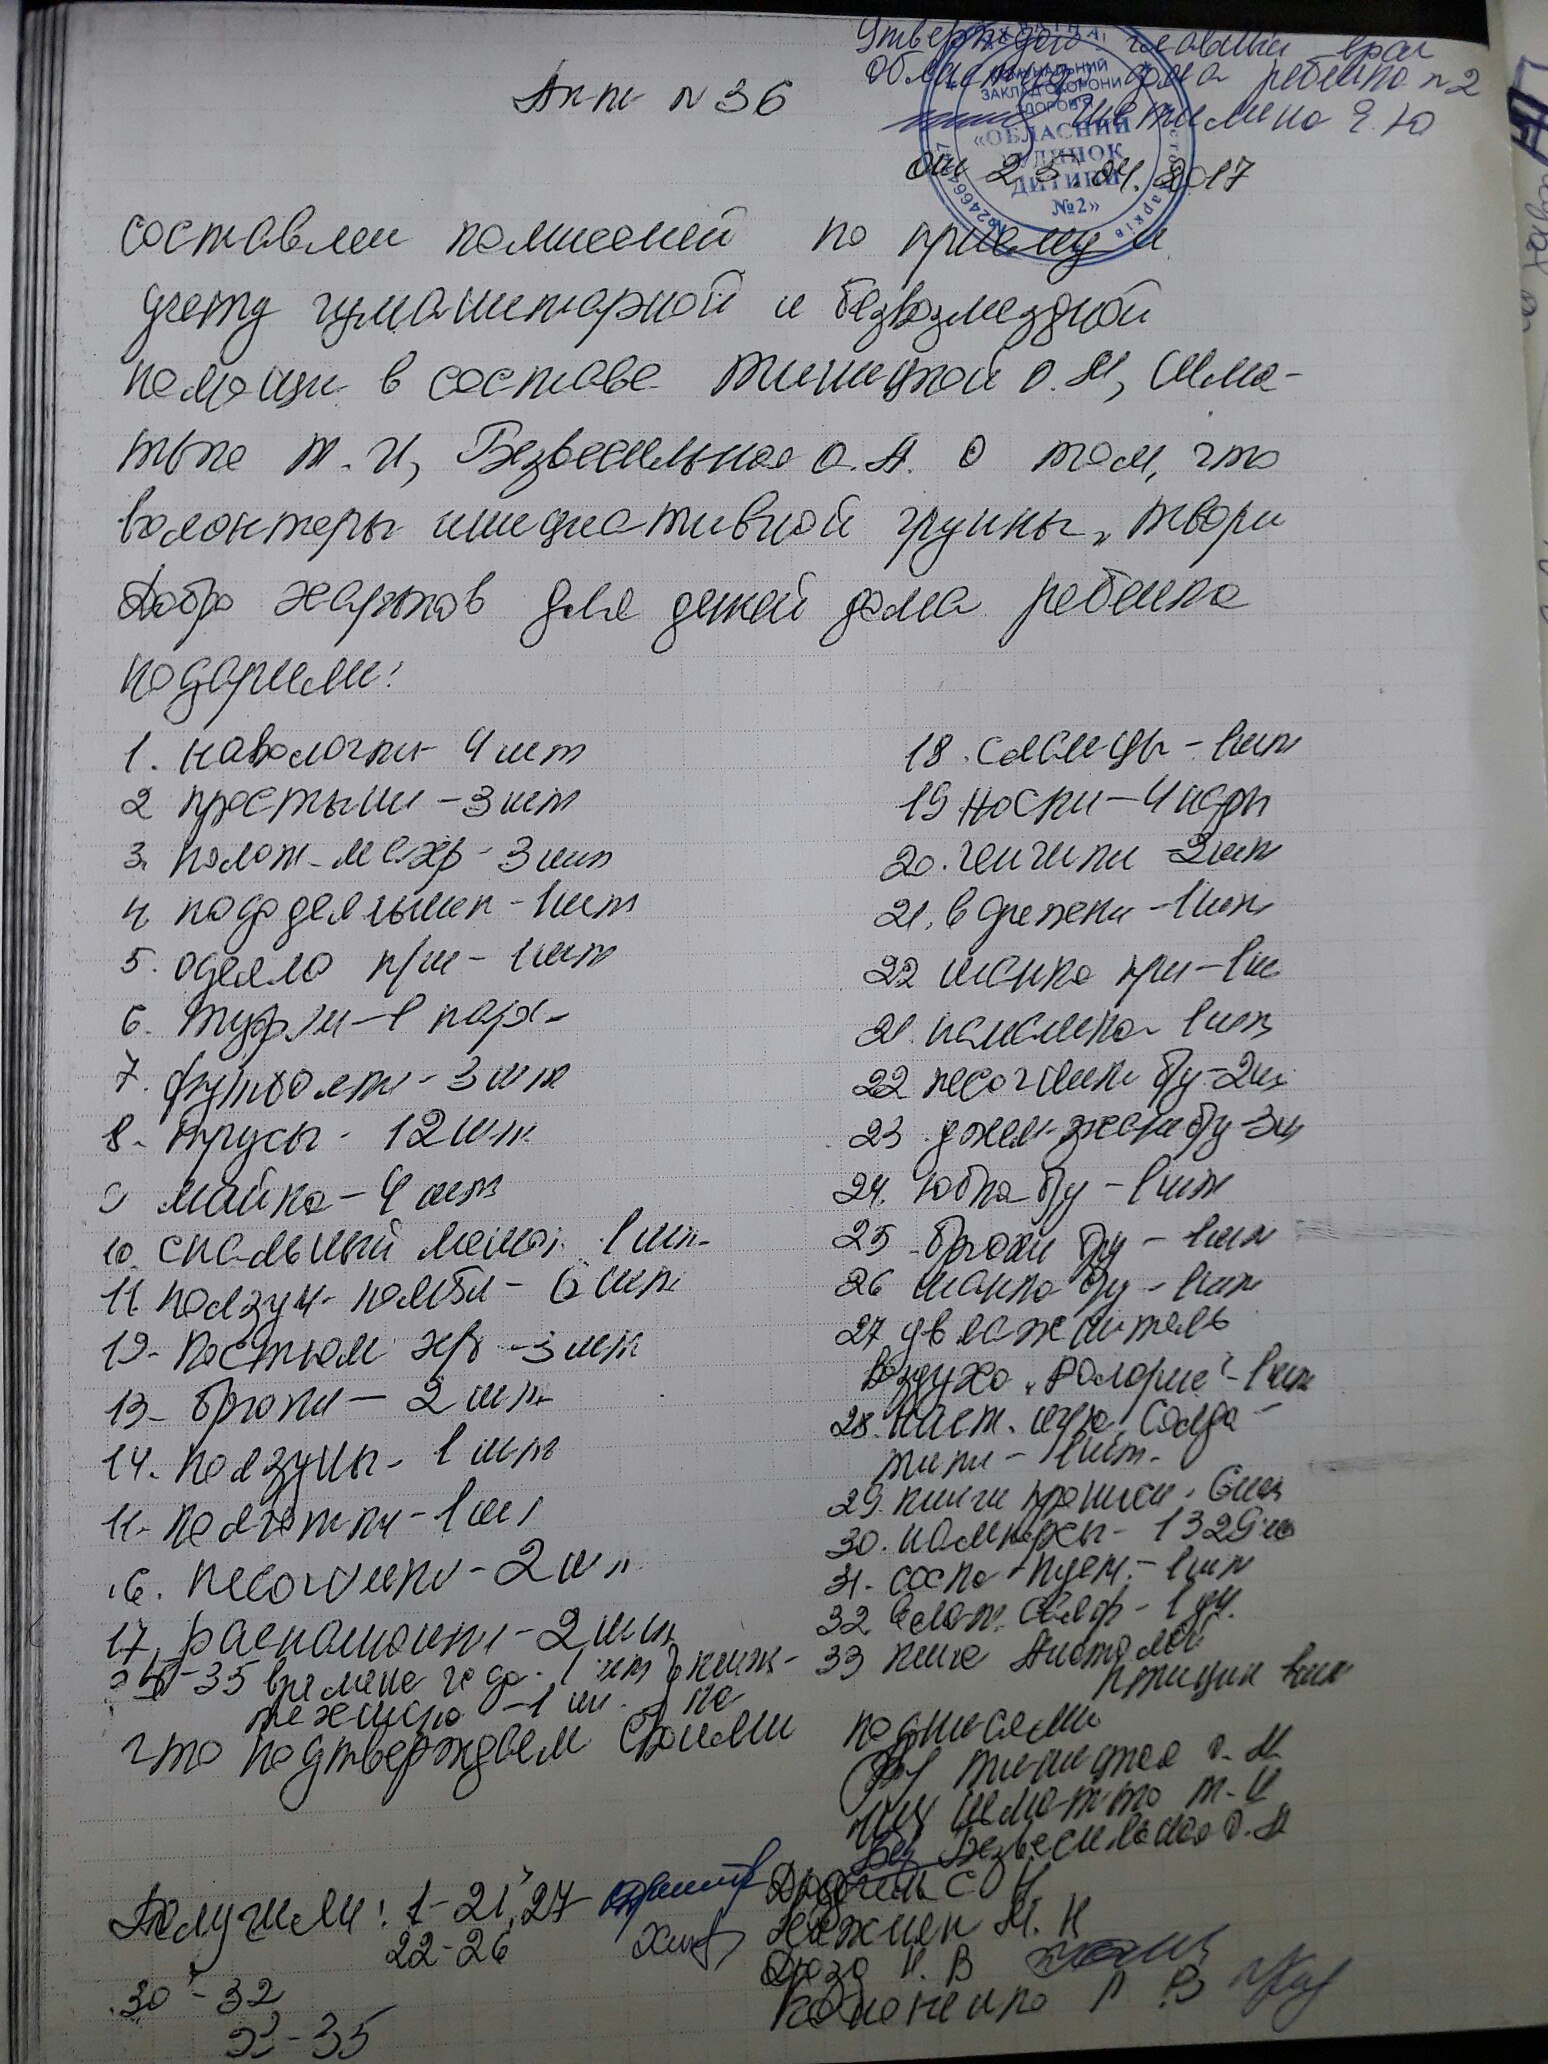 Утверждаю главный врач
Областного дома ребенка №2
Ю
Акт №36
КОМУНАЛЬНИЙ
ЗАКЛАД ОХОРОНИ
ЗДОРОВ'Я
«ОБЛАСНИЙ
БУДИНОК
ДИТИНИ
№2»
Харків
от 25.04.2017
составлен комиссией по приему и
учету гуманитарной и безвозмездной
помощи в составе Тницкой О.М, Шма-
тько Т.И, Безвесильная О.А. о том, что
волонтеры инициативной группы „Твори
Добро Харьков для детей дома ребенка
подарили:
1. наволочки - 4 шт
2 простыни - 3 шт
3. полот. махр - 3 шт
4. пододеяльник - 1шт
5. одеяло п/ш - 1 шт
6. туфли - 1 пара
7. футболки - 3 шт
8. трусы - 12 шт.
9 майка - 4 шт
10. спальный мешок 1 шт.
11. ползун. комби - 6 шт
12. костюм хб - 3 шт
13. брюки - 2 шт
14. ползуны - 1 шт
11. колготки - 1 шт
16. песочники - 2 шт
17. распашонки - 2 шт
18. слюнцы - 1шт
19 носки - 4 пары
20. чепчики - 2шт
21. варежки - 1шт
22 шапка - 1ш
21. 1шт
22 песочники бу - 2ш
23. бу - 3ш
24. юбка бу - 1шт
25. брюки бу - 1шт
26 шапка бу - 1шт
27 увлажнитель
воздуха - 1шт
28. наст. игра Солда-
тики - 1шт.
29. книги - 6шт
30. памперсы - 1329шт
31. соска пуст. - 1шт
32. влаж. салф - 1 уп.
33 книга Аистёнок
птицы 1шт
34-35 времена года 1 шт книж-
ка
что подтверждаем своими подписями
Тницкая О.М
Шматько Т.И
Безвесильная О.А
Получили: 1-21, 27
22-26
М. Н
Дюга Н. В
30 - 32
33 - 35
Кононенко Л В